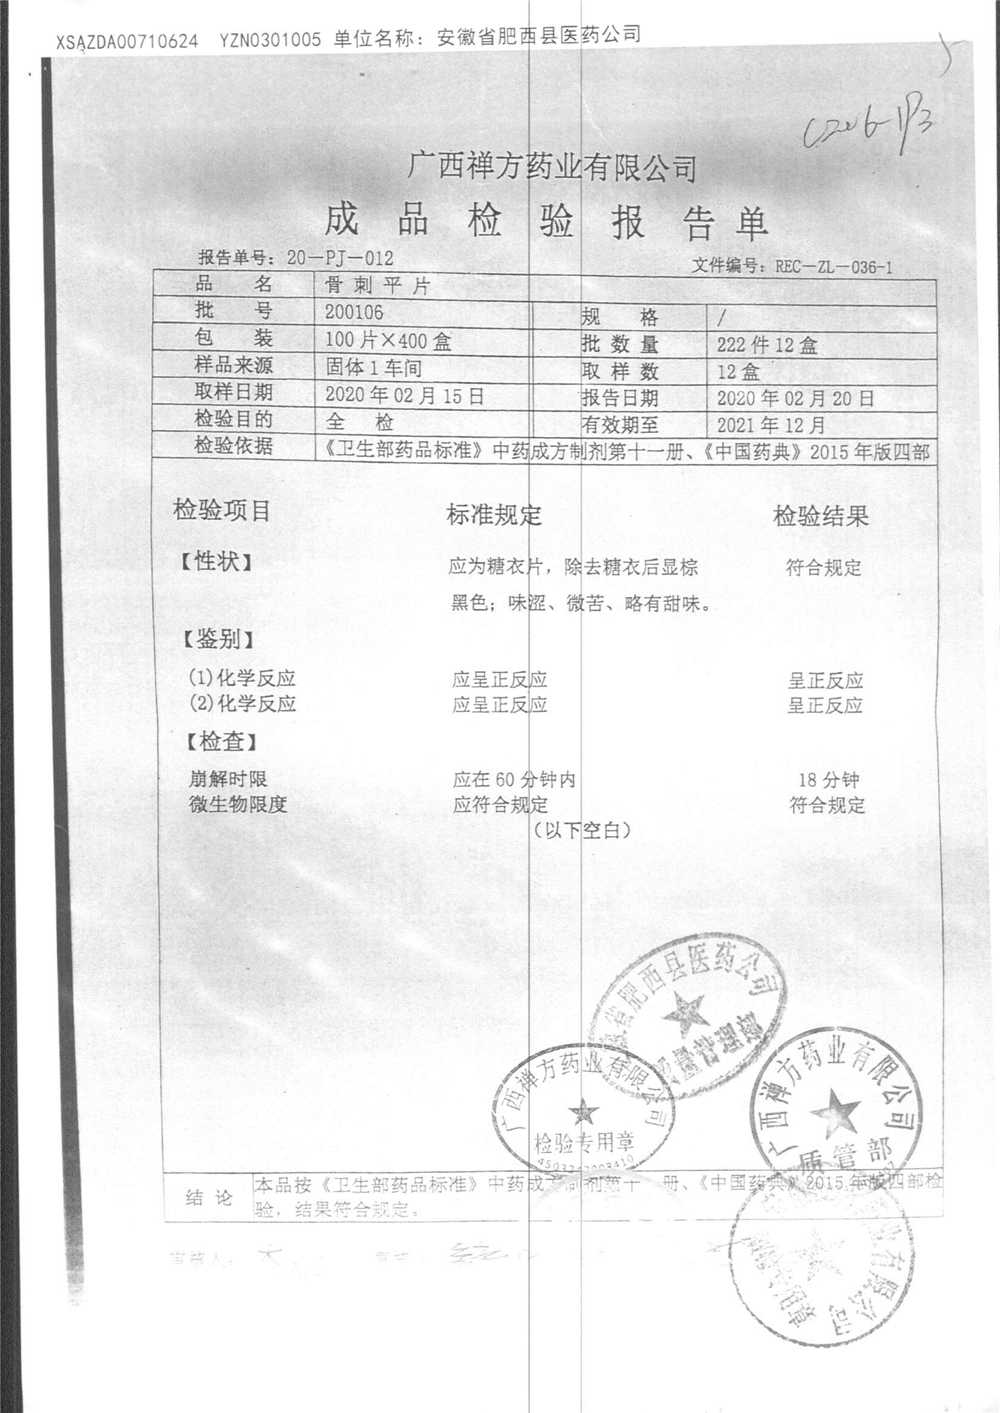 XSAZDA00710624 YZN0301005 单位名称：安徽省肥西县医药公司
广西禅方药业有限公司
成品检验报告单
报告单号：20-PJ-012 文件编号：REC-ZL-036-1
品名 骨刺平片
批号 200106 规格 /
包装 100片×400盒 批数量 222件12盒
样品来源 固体1车间 取样数 12盒
取样日期 2020年02月15日 报告日期 2020年02月20日
检验目的 全检 有效期至 2021年12月
检验依据 《卫生部药品标准》中药成方制剂第十一册、《中国药典》2015年版四部
检验项目 标准规定 检验结果
【性状】 应为糖衣片，除去糖衣后显棕 符合规定
黑色；味涩、微苦、略有甜味。
【鉴别】
(1)化学反应 应呈正反应 呈正反应
(2)化学反应 应呈正反应 呈正反应
【检查】
崩解时限 应在60分钟内 18分钟
微生物限度 应符合规定 符合规定
（以下空白）
省肥西县医药公司
质量管理部
广西禅方药业有限公司
检验专用章
广西禅方药业有限公司
质管部
结论 本品按《卫生部药品标准》中药成方制剂第十一册、《中国药典》2015年版四部检
验，结果符合规定。
业有限公司